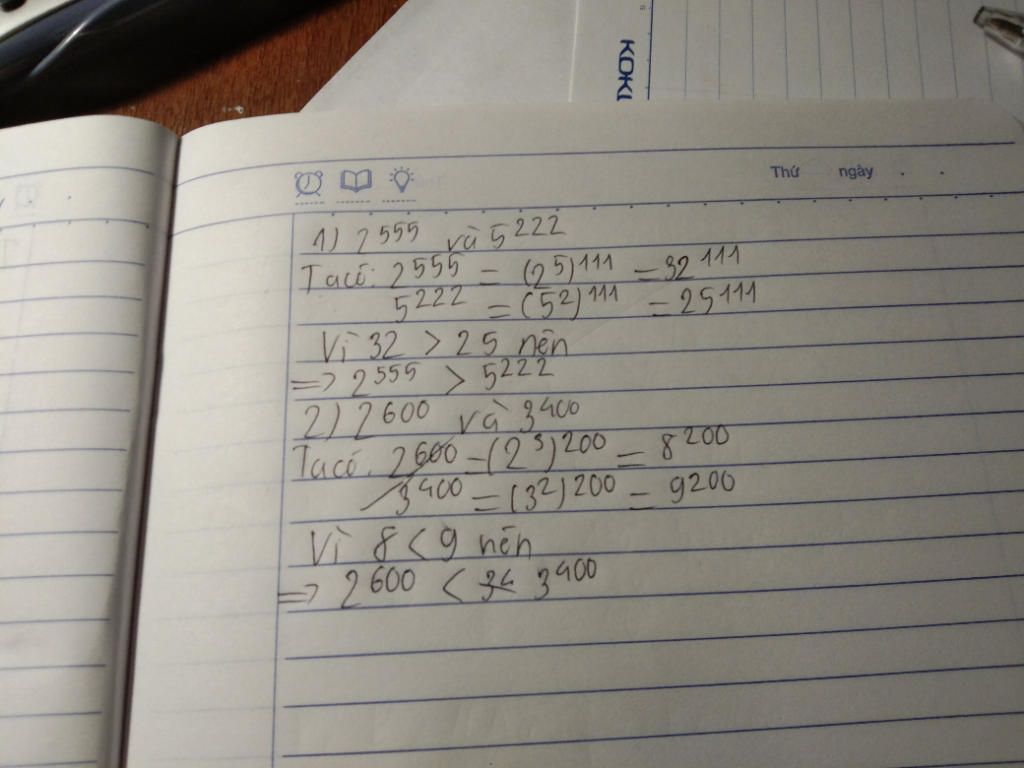 KOKU
Thứ ngày . .
1) 2^555 và 5^222
Ta có: 2^555 = (2^5)^111 = 32^111
5^222 = (5^2)^111 = 25^111
Vì 32 > 25 nên
=> 2^555 > 5^222
2) 2^600 và 3^400
Ta có: 2^600 = (2^3)^200 = 8^200
3^400 = (3^2)^200 = 9^200
Vì 8 < 9 nên
=> 2^600 < 3^400